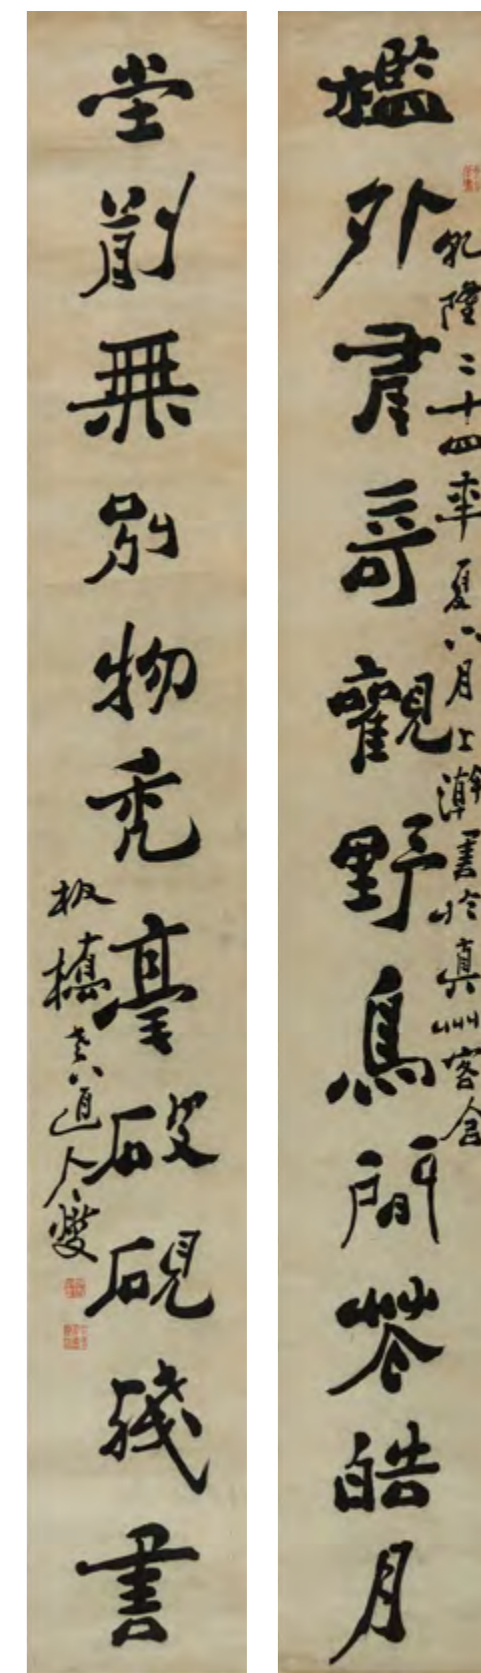 檻外有奇觀野鳥閒花皓月
乾隆二十四年夏六月上澣書於真州客舍
堂前無別物禿毫破硯殘書
板橋道人燮